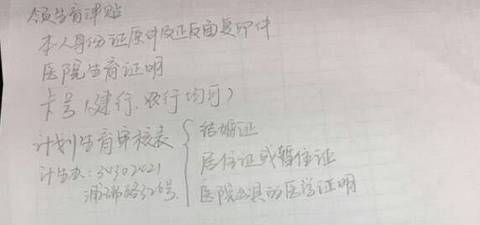 领生育津贴
本人身份证原件及正反面复印件
医院生育证明
卡号(建行、农行均可)
计划生育审核表
结婚证
计生办:34302421
居住证或暂住证
路326号
医院出具的医学证明